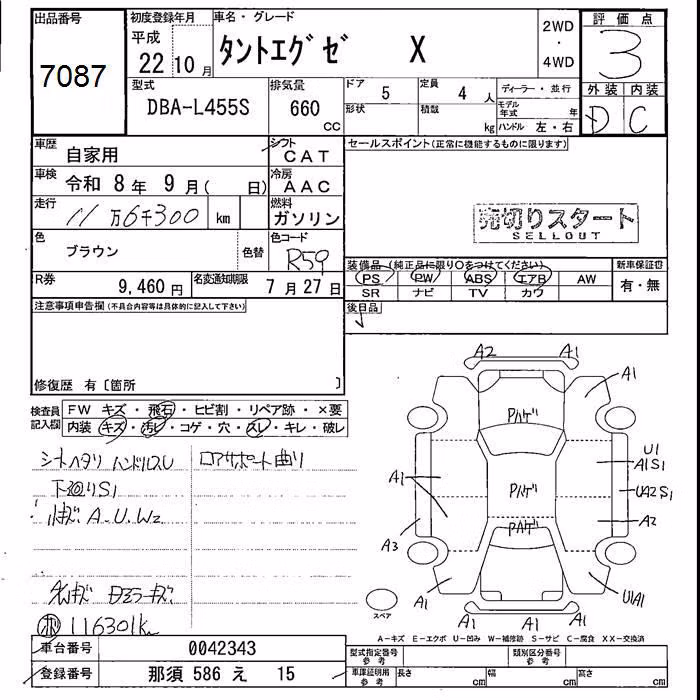 出品番号
7087
初度登録年月
平成
22 10 月
車名・グレード
タントエグゼ X
2WD
・
4WD
評価点
3
型式
DBA-L455S
排気量
660
CC
ドア
5
定員
4 人
形状
積載
kg
ディーラー・並行
モデル年式 年
ハンドル 左・右
外装 内装
D C
車歴
自家用
シフト
CAT
車検
令和 8 年 9 月 ( 日)
冷房
AAC
走行
11 万6千300 km
燃料
ガソリン
色
ブラウン
色替
色コード
R59
R券
9,460 円
名変通知期限
7 月 27 日
セールスポイント(正常に機能するものに限ります)
売切りスタート
SELLOUT
装備品 (純正品に限り○をつけてください)
PS PW ABS エアB AW
SR ナビ TV カワ
新車保証書
有・無
後日品
注意事項申告欄(不具合内容等は具体的に記入して下さい)
修復歴 有〔箇所 〕
検査員
記入欄
FW キズ・飛石・ヒビ割・リペア跡・×要
内装 キズ・汚レ・コゲ・穴・スレ・キレ・破レ
シートヘタリ ハンドルスレ
コアサポート曲り
下廻りS1
小キズA.U.W2
116301k
A2 A1
A1
Pハゲ
U1
A1S1
A1
Pハゲ
UA2S1
A2
Pハゲ
A3
A1
UA1
スペア
A1 A1
A-キズ E-エクボ U-凹み W-補修跡 S-サビ C-腐食 XX-交換済
車台番号 0042343
登録番号 那須 586 え 15
型式指定番号
参考
類別区分番号
参考
車庫証明用
参考
長さ cm 幅 cm 高さ cm